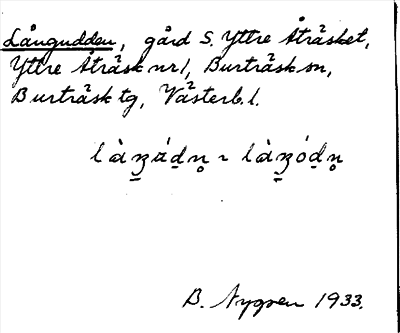 Långudden, gård S. Yttre Åträsket,
Yttre Åträsk nr 1, Burträsk sn,
Burträsk tg, Västerb. l.
B. Nygren 1933.